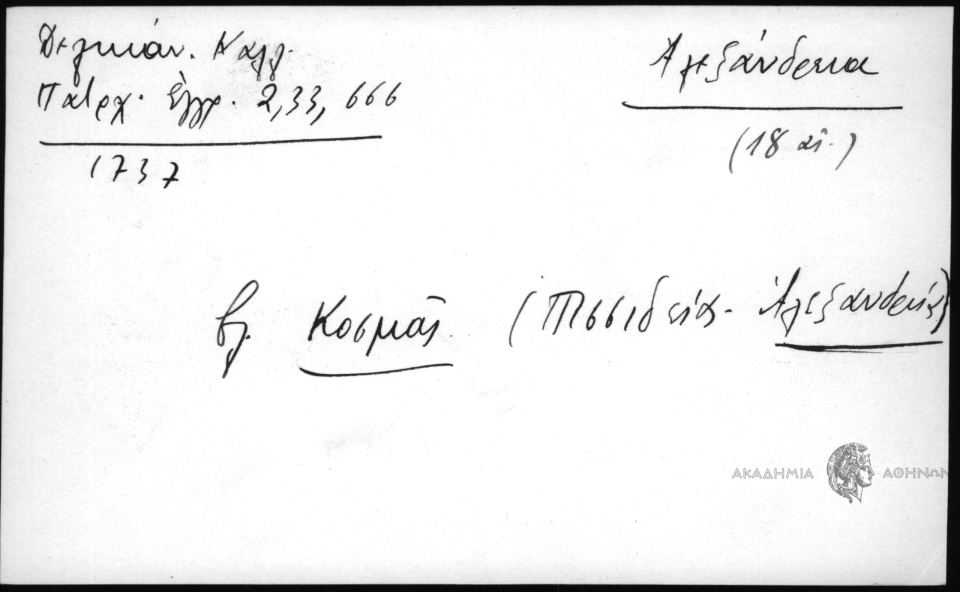 Δελικάν. Καλλ.
Πατρχ. ἔγγρ. 2,33, 666
1737
Ἀλεξάνδρεια
(18 αἰ.)
βλ. Κοσμᾶς (Πισσιδείας - Ἀλεξανδρείας)
ΑΚΑΔΗΜΙΑ ΑΘΗΝΩΝ